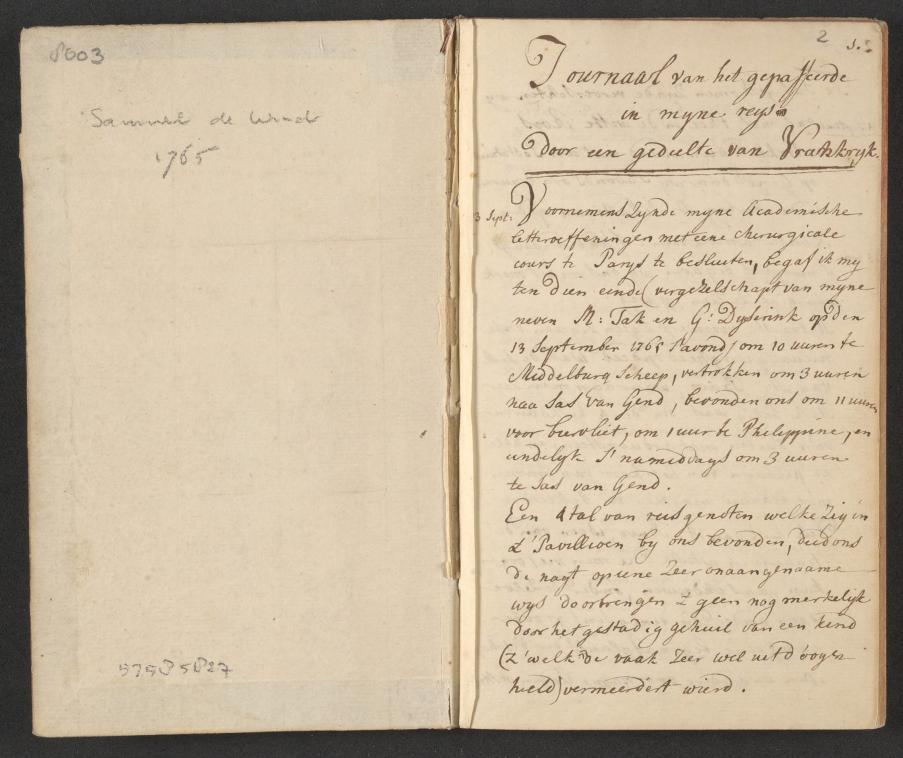 8003
Samuel de Wind
1765
57585827
2
Journaal van het gepasseerde
in myne reys
Door een gedeelte van Vrankryk.
3 Sept:
Voornemens Zynde myne Academische
letteroeffeningen met eene Chirurgicale
cours te Parys te besluiten, begaf ik my
ten dien einde (vergezelschapt van myne
neven M: Tak en G: Dyserink op den
13 September 1765 s'avonds) om 10 uuren te
Middelburg Scheep, vertrokken om 3 uuren
naa Sas van Gend, bevonden ons om 11 uuren
voor biervliet, om 1 uur te Philippine, en
eindelyk s'namiddags om 3 uuren
te Sas van Gend.
Een 4tal van reisgenoten welke Zig in
d'Pavillioen by ons bevonden, deed ons
de nagt op eene Zeer onaangenaame
wys doorbrengen 't geen nog merkelyk
door het gestadig gehuil van een kind
(t'welk de vaak Zeer wel uit d'oogen
hield) vermeerdert wierd.